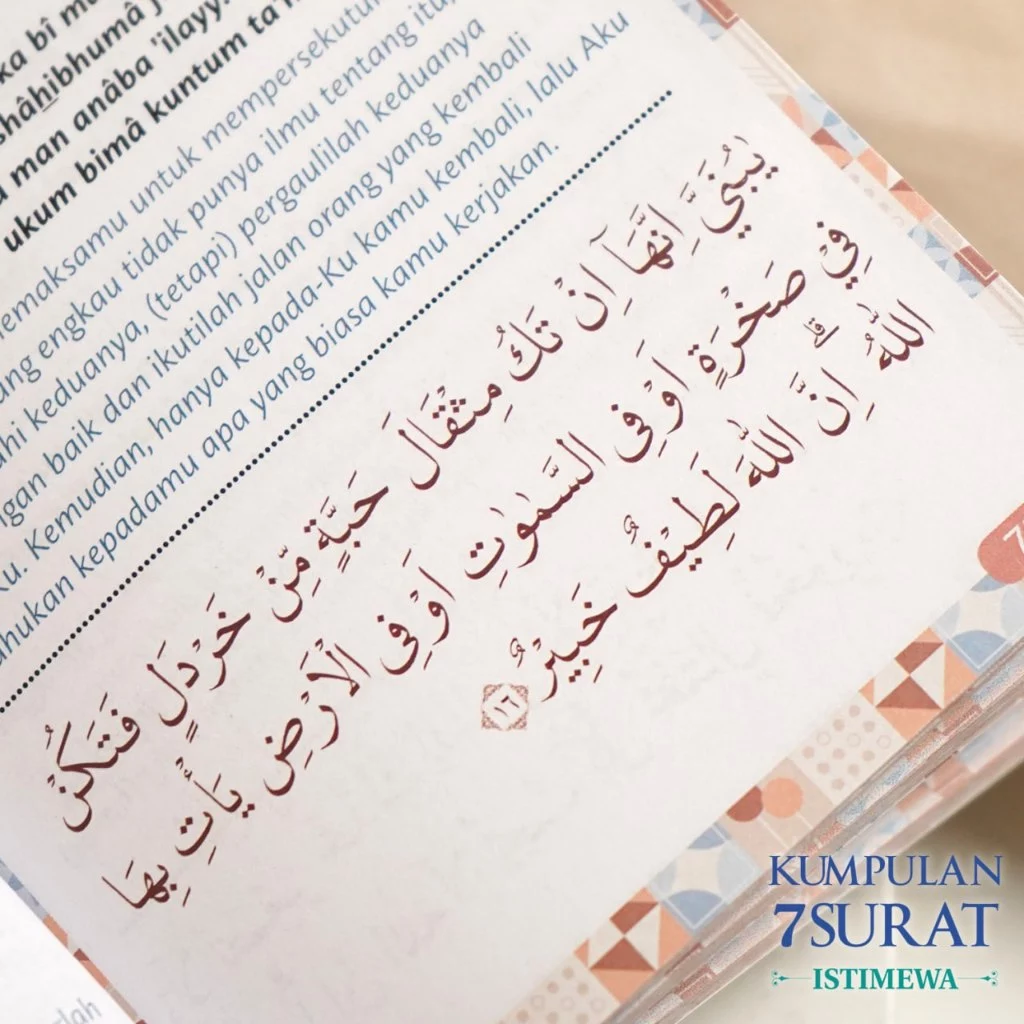 shâḥibhumâ
man anâba 'ilayy.
ukum bimâ kuntum
untuk mempersekutu
engkau tidak punya ilmu tentang itu,
keduanya, (tetapi) pergaulilah keduanya
baik dan ikutilah jalan orang yang kembali
Kemudian, hanya kepada-Ku kamu kembali, lalu Aku
kepadamu apa yang biasa kamu kerjakan.
يٰبُنَيَّ اِنَّهَآ اِنْ تَكُ مِثْقَالَ حَبَّةٍ مِّنْ خَرْدَلٍ فَتَكُنْ
فِيْ صَخْرَةٍ اَوْ فِى السَّمٰوٰتِ اَوْ فِى الْاَرْضِ يَأْتِ بِهَا
اللّٰهُ ۗاِنَّ اللّٰهَ لَطِيْفٌ خَبِيْرٌ ١٦
7
KUMPULAN
7SURAT
ISTIMEWA